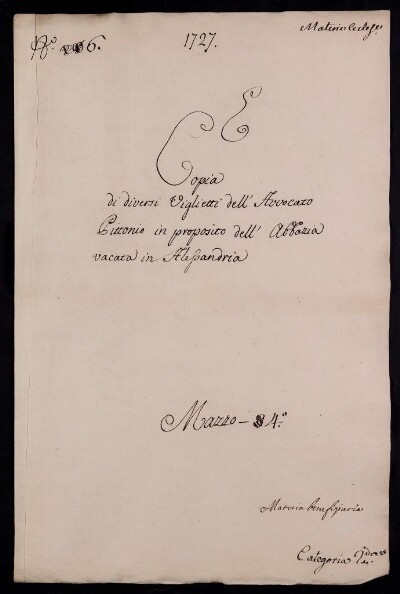 Materie Eccles.e
N.o 6.
1727.
E
Copia
di diversi Viglietti dell' Avvocato
Pittonio in proposito dell' Abbazia
vacata in Alessandria
Mazzo - 4.o
Materia beneficiaria
Categoria 2.da